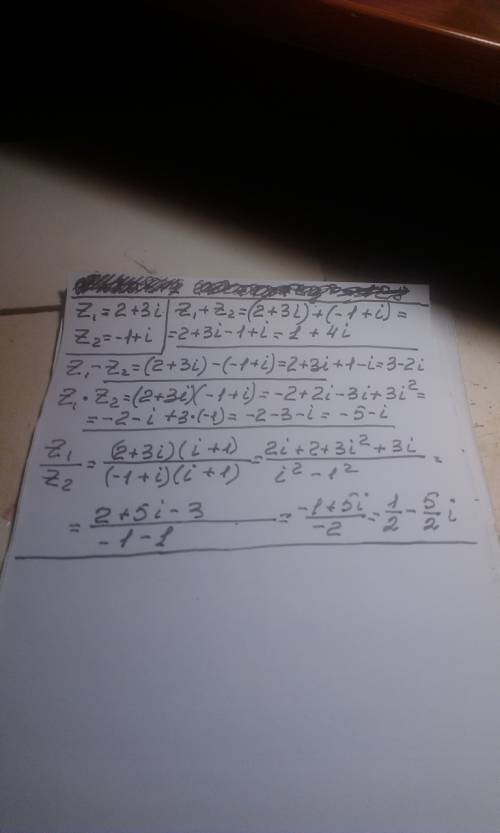 Z₁=2+3i | Z₁+Z₂=(2+3i)+(-1+i)=
Z₂=-1+i | =2+3i-1+i=1+4i
Z₁-Z₂=(2+3i)-(-1+i)=2+3i+1-i=3-2i
Z₁·Z₂=(2+3i)(-1+i)=-2+2i-3i+3i²=
=-2-i+3·(-1)=-2-3-i=-5-i
Z₁/Z₂=(2+3i)(i+1)/(-1+i)(i+1)=2i+2+3i²+3i/i²-1²=
=2+5i-3/-1-1=-1+5i/-2=1/2-5/2i